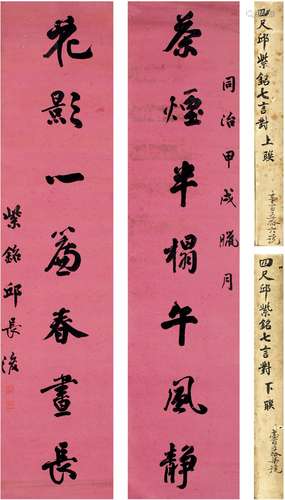 茶煙半榻午風静
同治甲戌臘月
花影一簾春晝長
紫銘邱長濬
四尺邱紫銘七言對上聯
四尺邱紫銘七言對下聯